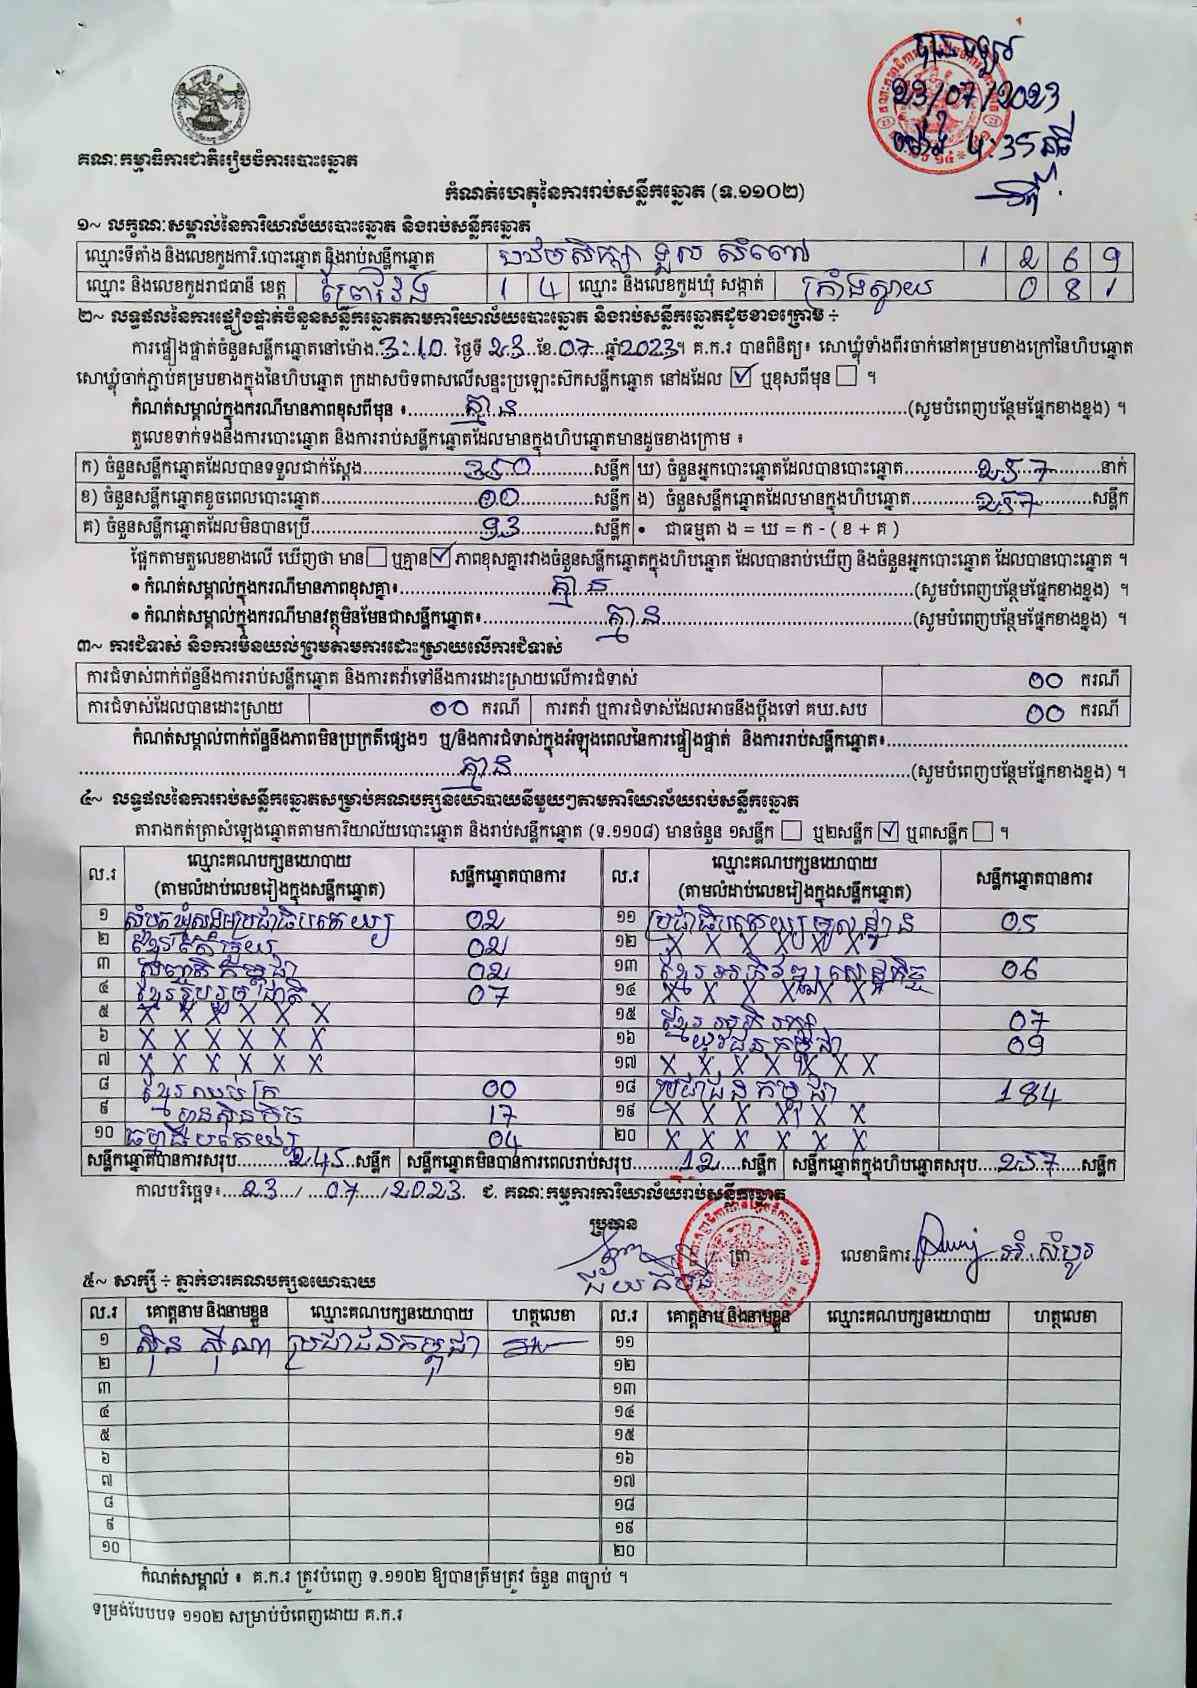 បានឃើញ
23/07/2023
ម៉ោង 4:35 នាទី
គណៈកម្មាធិការជាតិរៀបចំការបោះឆ្នោត
កំណត់ហេតុនៃការរាប់សន្លឹកឆ្នោត (ទ.១១០២)
១~ លក្ខណៈសម្គាល់នៃការិយាល័យបោះឆ្នោត និងរាប់សន្លឹកឆ្នោត
ឈ្មោះទីតាំង និងលេខកូដការិ.បោះឆ្នោត និងរាប់សន្លឹកឆ្នោត បឋមសិក្សា ទួល សំពៅ 1 2 6 9
ឈ្មោះ និងលេខកូដរាជធានី ខេត្ត ព្រៃវែង 1 4 ឈ្មោះ និងលេខកូដឃុំ សង្កាត់ ក្រាំងស្វាយ 0 8 1
២~ លទ្ធផលនៃការផ្ទៀងផ្ទាត់ចំនួនសន្លឹកឆ្នោតតាមការិយាល័យបោះឆ្នោត និងរាប់សន្លឹកឆ្នោតដូចខាងក្រោម ÷
ការផ្ទៀងផ្ទាត់ចំនួនសន្លឹកឆ្នោតនៅម៉ោង..3:10. ថ្ងៃទី 23. ខែ.07...ឆ្នាំ2023។ គ.ក.រ បានពិនិត្យ៖ សោឃ្លុំទាំងពីរចាក់នៅគម្របខាងក្រៅនៃហិបឆ្នោត
សោឃ្លុំចាក់ភ្ជាប់គម្របខាងក្នុងនៃហិបឆ្នោត ក្រដាសបិទពាសលើសន្ទះប្រឡោះស៊កសន្លឹកឆ្នោត នៅដដែល ☑ ឬខុសពីមុន ☐ ។
កំណត់សម្គាល់ក្នុងករណីមានភាពខុសពីមុន ៖..........គ្មាន..........(សូមបំពេញបន្ថែមផ្នែកខាងខ្នង) ។
តួលេខទាក់ទងនឹងការបោះឆ្នោត និងការរាប់សន្លឹកឆ្នោតដែលមានក្នុងហិបឆ្នោតមានដូចខាងក្រោម ៖
ក) ចំនួនសន្លឹកឆ្នោតដែលបានទទួលជាក់ស្តែង..........350..........សន្លឹក ឃ) ចំនួនអ្នកបោះឆ្នោតដែលបានបោះឆ្នោត..........257..........នាក់
ខ) ចំនួនសន្លឹកឆ្នោតខូចពេលបោះឆ្នោត..........00..........សន្លឹក ង) ចំនួនសន្លឹកឆ្នោតដែលមានក្នុងហិបឆ្នោត..........257..........សន្លឹក
គ) ចំនួនសន្លឹកឆ្នោតដែលមិនបានប្រើ..........93..........សន្លឹក • ជាធម្មតា ង = ឃ = ក - ( ខ + គ )
ផ្អែកតាមតួលេខខាងលើ ឃើញថា មាន ☐ ឬគ្មាន ☑ ភាពខុសគ្នារវាងចំនួនសន្លឹកឆ្នោតក្នុងហិបឆ្នោត ដែលបានរាប់ឃើញ និងចំនួនអ្នកបោះឆ្នោត ដែលបានបោះឆ្នោត ។
• កំណត់សម្គាល់ក្នុងករណីមានភាពខុសគ្នា៖..........គ្មាន..........(សូមបំពេញបន្ថែមផ្នែកខាងខ្នង) ។
• កំណត់សម្គាល់ក្នុងករណីមានវត្ថុមិនមែនជាសន្លឹកឆ្នោត៖..........គ្មាន..........(សូមបំពេញបន្ថែមផ្នែកខាងខ្នង) ។
៣~ ការជំទាស់ និងការមិនយល់ព្រមតាមការដោះស្រាយលើការជំទាស់
ការជំទាស់ពាក់ព័ន្ធនឹងការរាប់សន្លឹកឆ្នោត និងការតវ៉ាទៅនឹងការដោះស្រាយលើការជំទាស់ 00 ករណី
ការជំទាស់ដែលបានដោះស្រាយ 00 ករណី ការតវ៉ា ឬការជំទាស់ដែលអាចនឹងប្តឹងទៅ គឃ.សប 00 ករណី
កំណត់សម្គាល់ពាក់ព័ន្ធនឹងភាពមិនប្រក្រតីផ្សេងៗ ឬ/និងការជំទាស់ក្នុងអំឡុងពេលនៃការផ្ទៀងផ្ទាត់ និងការរាប់សន្លឹកឆ្នោត៖..........
..........គ្មាន..........(សូមបំពេញបន្ថែមផ្នែកខាងខ្នង) ។
៤~ លទ្ធផលនៃការរាប់សន្លឹកឆ្នោតសម្រាប់គណបក្សនយោបាយនីមួយៗតាមការិយាល័យរាប់សន្លឹកឆ្នោត
តារាងកត់ត្រាសំឡេងឆ្នោតតាមការិយាល័យបោះឆ្នោត និងរាប់សន្លឹកឆ្នោត (ទ.១១០៨) មានចំនួន ១សន្លឹក ☐ ឬ២សន្លឹក ☑ ឬ៣សន្លឹក ☐ ។
ល.រ ឈ្មោះគណបក្សនយោបាយ (តាមលំដាប់លេខរៀងក្នុងសន្លឹកឆ្នោត) សន្លឹកឆ្នោតបានការ ល.រ ឈ្មោះគណបក្សនយោបាយ (តាមលំដាប់លេខរៀងក្នុងសន្លឹកឆ្នោត) សន្លឹកឆ្នោតបានការ
១ សំបុកឃ្មុំសង្គមប្រជាធិបតេយ្យ 02 ១១ ប្រជាធិបតេយ្យមូលដ្ឋាន 05
២ ខ្មែរតែមួយ 02 ១២ X X X X X X
៣ សញ្ជាតិកម្ពុជា 02 ១៣ ខ្មែរអភិវឌ្ឍសេដ្ឋកិច្ច 06
៤ ខ្មែររួបរួមជាតិ 07 ១៤ X X X X X X
៥ X X X X X X ១៥ ខ្មែរអភិរក្ស 07
៦ X X X X X X ១៦ យុវជនកម្ពុជា 09
៧ X X X X X X ១៧ X X X X X X X
៨ ខ្មែរឈប់ក្រ 00 ១៨ ប្រជាជនកម្ពុជា 184
៩ ហ៊្វុនស៊ិនប៉ិច 17 ១៩ X X X X X X
១០ ធម្មាធិបតេយ្យ 04 ២០ X X X X X X
សន្លឹកឆ្នោតបានការសរុប..........245..សន្លឹក សន្លឹកឆ្នោតមិនបានការពេលរាប់សរុប..........12....សន្លឹក សន្លឹកឆ្នោតក្នុងហិបឆ្នោតសរុប....257.....សន្លឹក
កាលបរិច្ឆេទ៖....23.../....07..../2023. ជ. គណៈកម្មការការិយាល័យរាប់សន្លឹកឆ្នោត
ប្រធាន
ត្រា លេខាធិការ.......... អំ សំបូរ
៥~ សាក្សី ÷ ភ្នាក់ងារគណបក្សនយោបាយ
ល.រ គោត្តនាម និងនាមខ្លួន ឈ្មោះគណបក្សនយោបាយ ហត្ថលេខា ល.រ គោត្តនាម និងនាមខ្លួន ឈ្មោះគណបក្សនយោបាយ ហត្ថលេខា
១ ស៊ិន ស៊ីណា ប្រជាជនកម្ពុជា ១១
២ ១២
៣ ១៣
៤ ១៤
៥ ១៥
៦ ១៦
៧ ១៧
៨ ១៨
៩ ១៩
១០ ២០
កំណត់សម្គាល់ ៖ គ.ក.រ ត្រូវបំពេញ ទ.១១០២ ឱ្យបានត្រឹមត្រូវ ចំនួន ៣ច្បាប់ ។
ទម្រង់បែបបទ ១១០២ សម្រាប់បំពេញដោយ គ.ក.រ